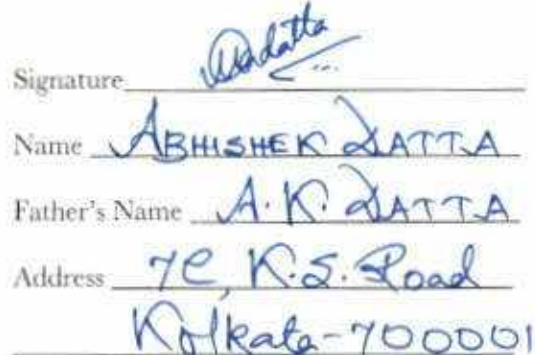 Signature
Name ABHISHEK DATTA
Father's Name A.K. DATTA
Address 7C, K.S. Road
Kolkata-700001